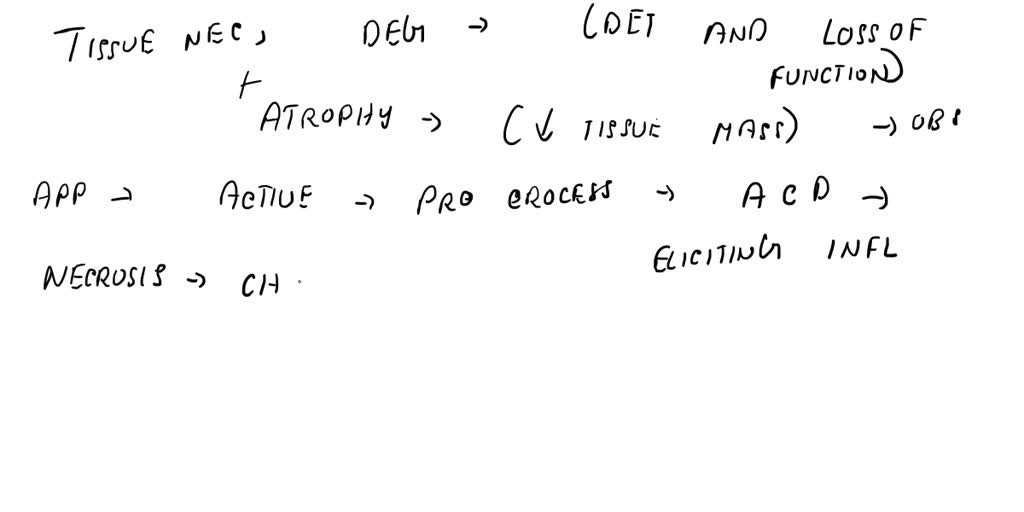 TISSUE NEC, DEG → (DET AND LOSS OF FUNCTION)
+ ATROPHY → (↓ TISSUE MASS) → OBS
APP → ACTIVE → PRO CROCESS → A C D →
ELICITING INFL
NECROSIS → CH